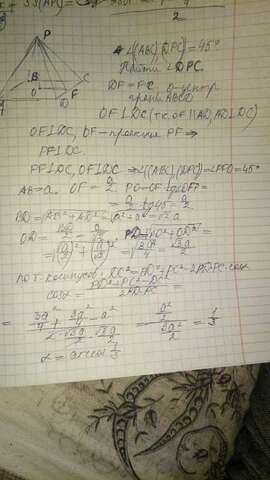 P
∠((ABC),(DPC))=45°
Найти ∠DPC.
B
C
O
F
D
DF=FC, O-центр
грани ABCD
OF⊥DC (т.к. OF||AD, AD⊥DC)
OF⊥DC, OF-проекция PF ⇒
PF⊥DC.
PF⊥DC, OF⊥DC ⇒ ∠((ABC),(DPC))=∠PFO=45°
AB=a. OF=a/2 PO=OF·tg OFP=
=a/2 tg45=a/2
BD=√AB²+AD²=√a²+a²=√2a
OD=BD/2=√2a/2 PD=√PO²+OD²=
=√(a/2)²+(√2a/2)²=√3a²/4=√3a/2
по т. косинусов: DC²=PD²+PC²-2PD·PC·cosα
cosα=PD²+PC²-DC²/2PD·PC=
=3a²/4+3a²/4-a²/2·√3a/2·√3a/2=a²/2/3a²/2=1/3
α=arccos 1/3